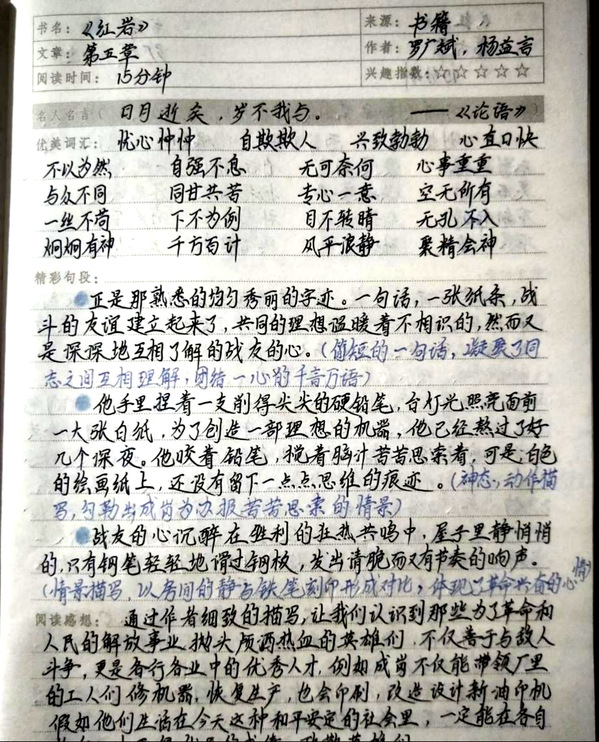 书名：《红岩》 来源：书籍
文章：第五章 作者：罗广斌，杨益言
阅读时间：15分钟 兴趣指数：☆☆☆☆☆
名人名言 日月逝矣，岁不我与。 ——《论语》
优美词汇：忧心忡忡 自欺欺人 兴致勃勃 心直口快
不以为然 自强不息 无可奈何 心事重重
与众不同 同甘共苦 专心一意 空无所有
一丝不苟 下不为例 目不转睛 无孔不入
炯炯有神 千方百计 风平浪静 聚精会神
精彩句段：
正是那熟悉的均匀秀丽的字迹。一句话，一张纸条，战
斗的友谊建立起来了，共同的理想温暖着不相识的，然而又
是深深地互相了解的战友的心。（简短的一句话，凝聚了同
志之间互相理解，团结一心的千言万语）
他手里捏着一支削得尖尖的硬铅笔，台灯光照亮面前
一大张白纸，为了创造一部理想的机器，他已经熬过了好
几个深夜。他咬着铅笔，搅着脑汁苦苦思索着，可是：白色
的绘画纸上，还没有留下一点点思维的痕迹。（神态，动作描
写，勾勒出成岗为办报苦苦思索的情景）
战友的心沉醉在胜利的狂热共鸣中，屋子里静悄悄
的，只有钢笔轻轻地滑过钢板，发出清脆而又有节奏的响声。
（情景描写，以房间的静与铁笔刻印形成对比，体现了革命兴奋的心情）
阅读感想：通过作者细致的描写，让我们认识到那些为了革命和
人民的解放事业抛头颅洒热血的英雄们，不仅善于与敌人
斗争，更是各行各业中的优秀人才，例如成岗不仅能带领厂里
的工人们修机器，恢复生产，也会印刷，改造设计新油印机
假如他们生活在今天这种和平安定的社会里，一定能在各自